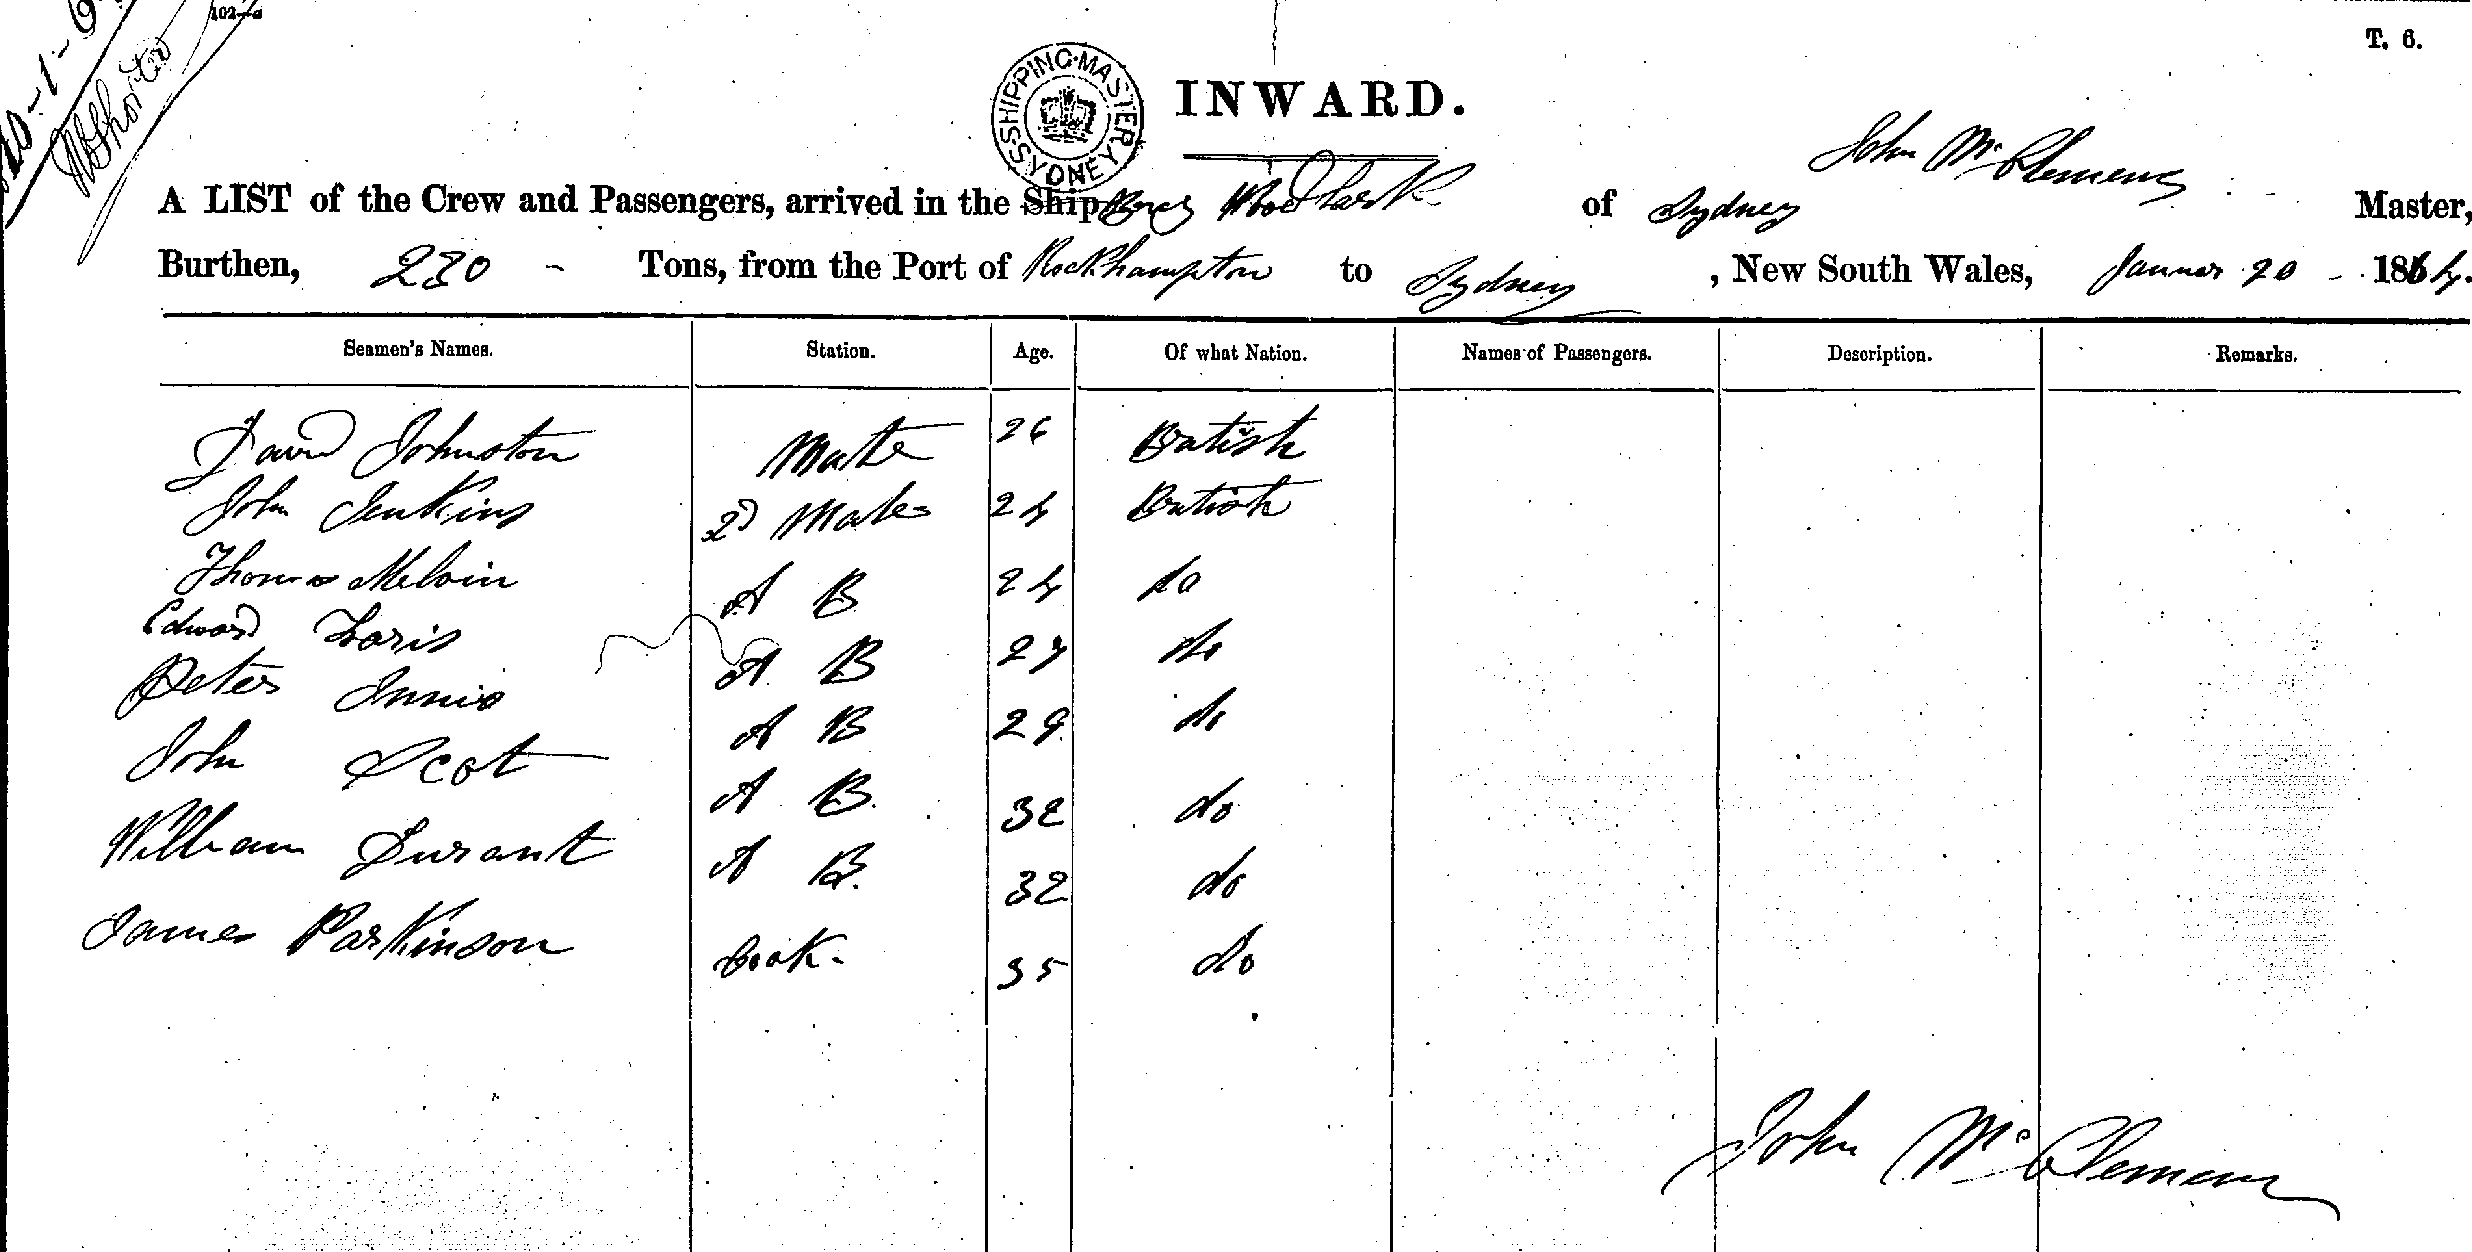 102—a
T. 6.
SHIPPING MASTER SYDNEY
INWARD.
John McClemens
A LIST of the Crew and Passengers, arrived in the Ship Woodlark of Sydney Master,
Burthen, 230 - Tons, from the Port of Rockhampton to Sydney, New South Wales, 20 - 1864.
Seamen's Names. Station. Age. Of what Nation. Names of Passengers. Description. Remarks.
David Johnston Mate 26 British
John Jenkins 2d Mate 24 British
Thomas Melvin A B 24 do
Edward A B 27 do
Peter Innis A B 29 do
John Scot A B. 32 do
William Durant A B. 32 do
James Parkinson Cook - 35 do
John McClemens